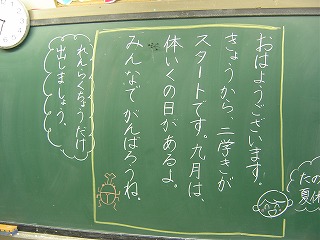 おはようございます。
きょうから、二学きが
スタートです。九月は、
体いくの日があるよ。
みんなでがんばろうね。
れんらくちょうだけ
出しましょう。
たの
夏休